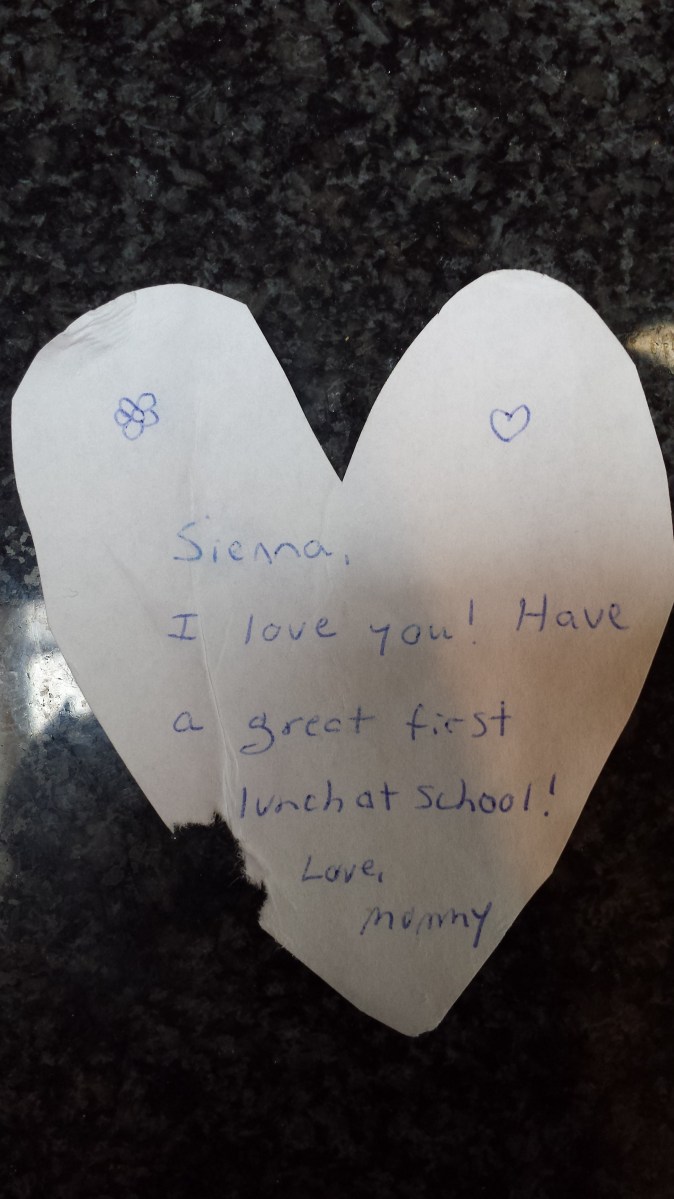 Sienna,
I love you! Have
a great first
lunch at school!
Love,
mommy